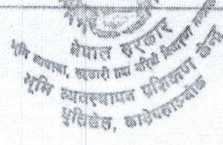 नेपाल सरकार
भूमि व्यवस्था, सहकारी तथा गरिबी निवारण
भूमि व्यवस्थापन प्रशिक्षण केन्द्र
धुलिखेल, काभ्रेपलाञ्चोक